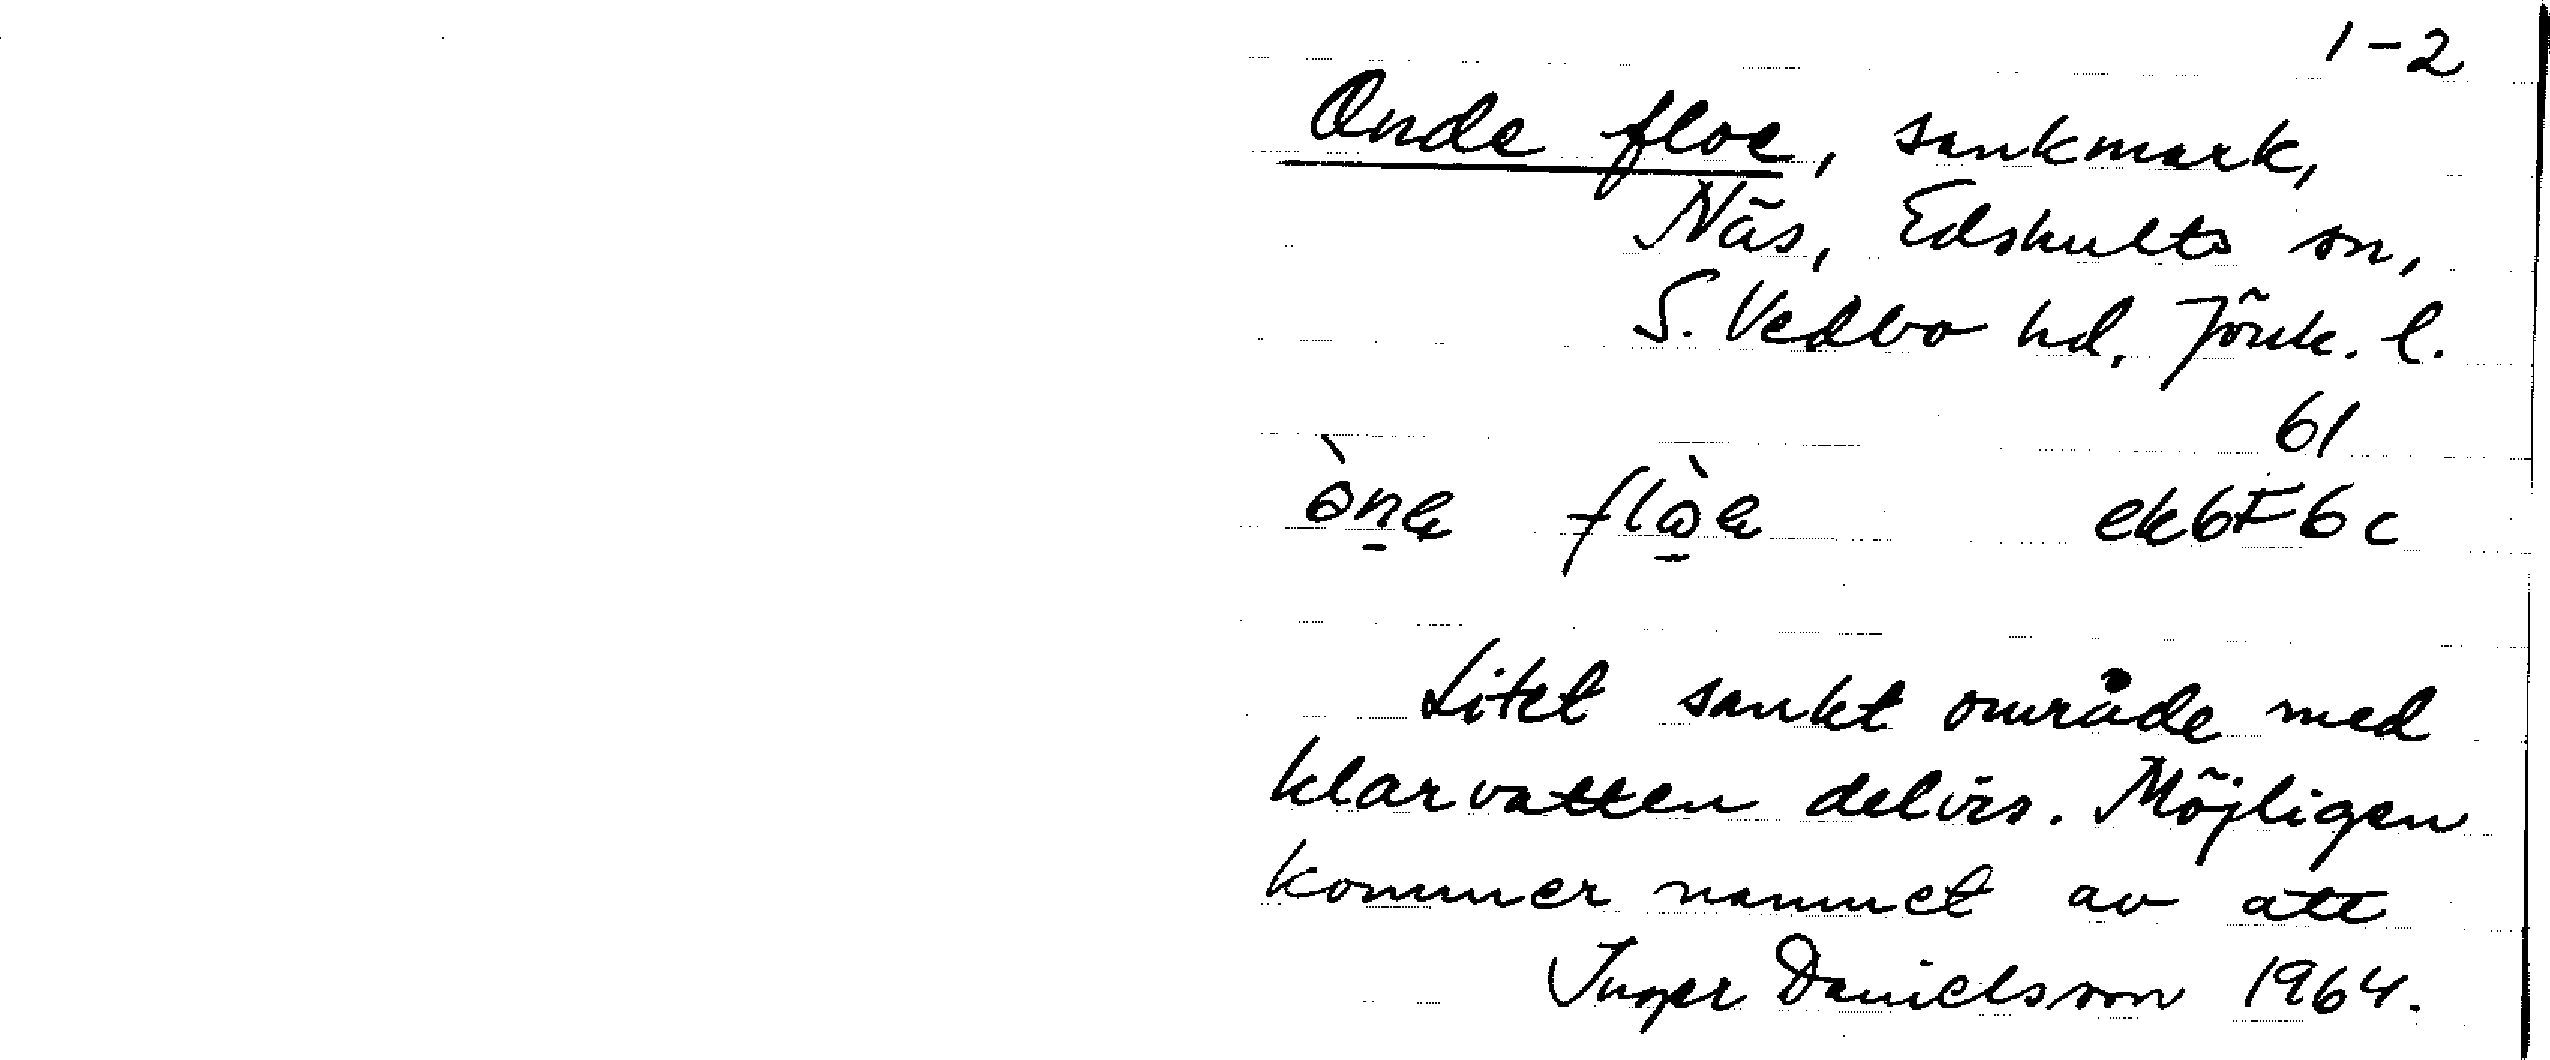 1-2
Onde floe, sankmark,
Näs, Edshults sn,
S. Vedbo hd, Jönk. l.
61
ek6F6c
Litet sankt område med
klarvatten delvis. Möjligen
kommer namnet av att
Inger Danielsson 1964.